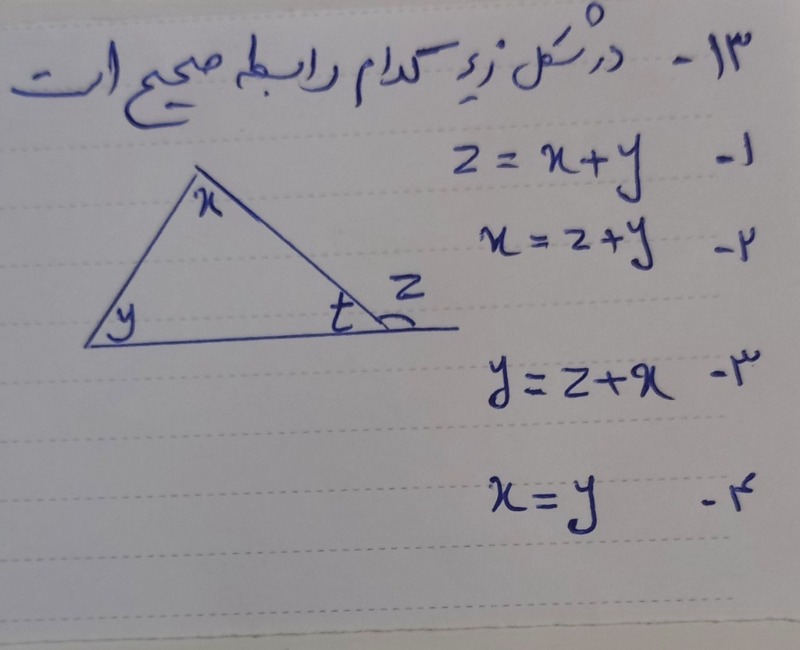 ۱۳- در شکل زیر کدام رابطه صحیح است
۱- z = x + y
۲- x = z + y
۳- y = z + x
۴- x = y
x
y
t
z